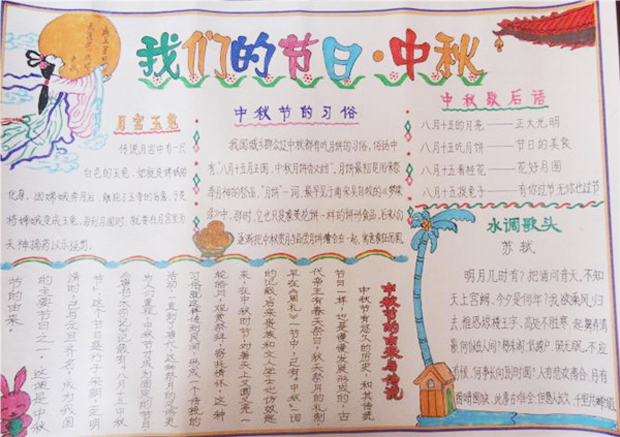 我们的节日·中秋
月宫玉兔
传说月宫中有一只
白色的玉兔,她就是嫦娥的
化身。因嫦娥奔月后,触犯了玉帝的旨意,于是
将嫦娥变成玉兔,每到月圆时,就要在月宫里为
天神捣药以示惩罚。
中秋节的习俗
我国城乡群众过中秋都有吃月饼的习俗,俗话中
有:“八月十五月正圆,中秋月饼香又甜”。月饼最初是用来祭
奉月神的祭品,“月饼”一词,最早见于南宋吴自牧的《梦粱
录》中,那时,它也只是像菱花饼一样的饼形食品。后来人们
逐渐把中秋赏月与品尝月饼结合在一起,寓意家人团圆
中秋歇后语
八月十五的月亮——正大光明
八月十五吃月饼——节日的美食
八月十五看桂花——花好月圆
八月十五捉兔子——有你过节无你也过节
水调歌头
苏轼
明月几时有?把酒问青天。不知
天上宫阙,今夕是何年?我欲乘风归
去,惟恐琼楼玉宇,高处不胜寒。起舞弄清
影,何似在人间?转朱阁,低绮户,照无眠。不应
有恨,何事长向别时圆?人有悲欢离合,月有
阴晴圆缺,此事古难全。但愿人长久,千里共婵娟
中秋节的由来与传说
中秋节有悠久的历史,和其他传统
节日一样,也是慢慢发展形成的,古
代帝王有春天祭日,秋天祭月的礼制,
早在《周礼》一书中,已有“中秋”一词
的记载。后来贵族和文人学士也仿效起
来,在中秋时节,对着天上又亮又
轮皓月,观赏祭拜,寄托情怀,这种
习俗就这样传到民间,形成一个传统的
活动,一直到了唐代,这种祭月的风俗更
为人们重视,中秋节才成为固定的节日,
《唐书·太宗记》记载有“八月十五中秋
节”,这个节日盛行于宋朝,至明
清时,已与元旦齐名,成为我国
的主要节日之一。这便是中秋
节的由来。